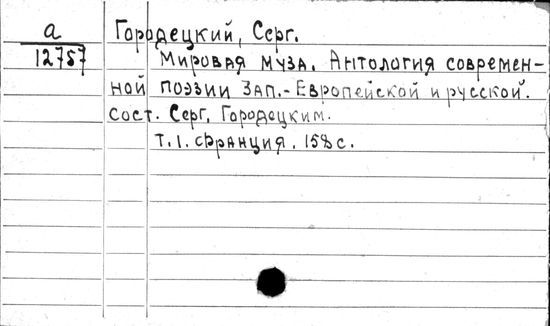 а
12757
Городецкий, Серг.
Мировая муза. Антология современ-
ной поэзии Зап.-Европейской и русской.
Сост. Серг. Городецким.
Т.1. Франция. 158 с.